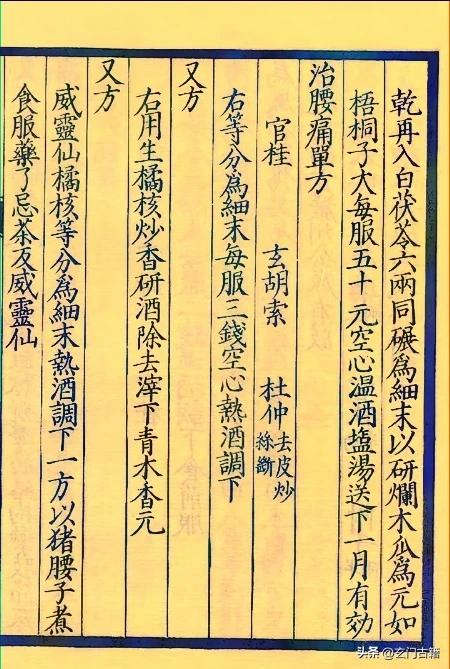 乾再入白茯苓六兩同碾爲細末以研爛木瓜爲元如
梧桐子大每服五十元空心温酒塩湯送下一月有効
治腰痛單方
官桂 玄胡索 杜仲去皮炒絲斷
右等分爲細末每服三錢空心熱酒調下
又方
右用生橘核炒香研酒除去滓下青木香元
又方
威靈仙橘核等分爲細末熱酒調下一方以猪腰子煮
食服藥了忌茶反威靈仙
头条@玄门古籍